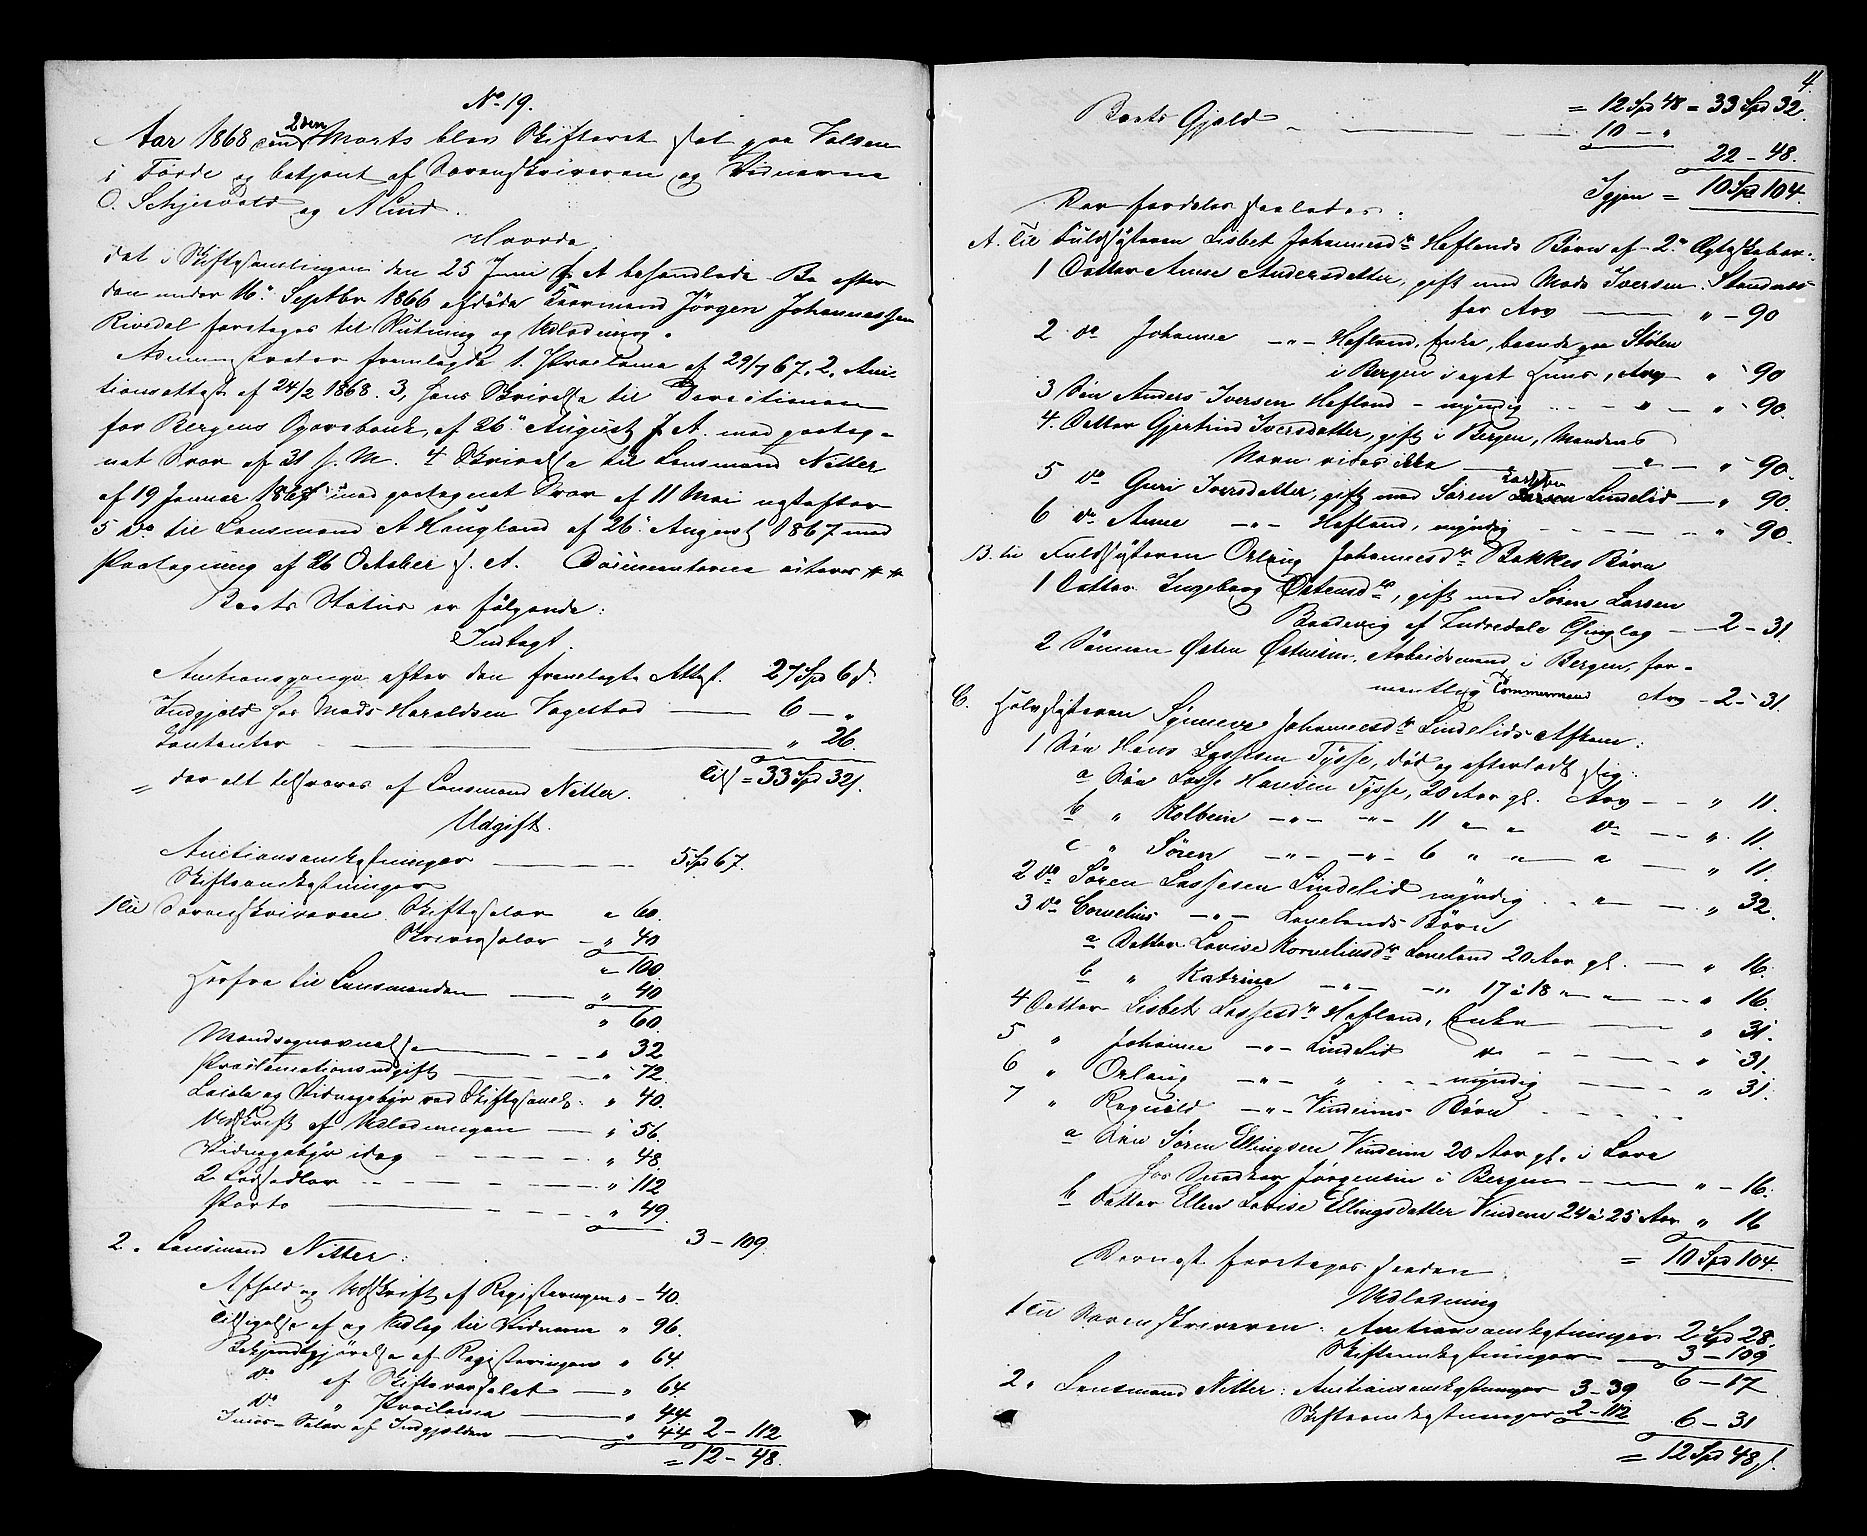 No 19.
Aar 1868 den 2den Marts blev Skifteret sat paa Halsen
i Førde og betjent af Sorenskriveren og Vidnerne
O. Schjervold og A Lind.
Hvorda
det i Skiftesamlingen den 25 Juni f. A behandlede Bo efter
den under 16de Septbr 1866 afdøde Kaarmand Jörgen Johannessen
Rivedal foretages til Slutning og Udlodning.
Administrator fremlagde 1. Proclama af 29/7 67. 2. Auc-
tionsattest af 24/2 1868. 3, hans Skrivelse til Directionen
for Bergens Sparebank, af 26de August f. A. med paateg-
net Svar af 31 s. M. 4 Skrivelse til Lensmand Nitter
af 19 Januar 1867 med paategnet Svar af 11 Mai
5 do til Lensmand A Haugland af 26de August 1867 med
Paategning af 26 October s. A. Documenterne
Boets Status er følgende:
Indtægt.
Auctionspenge efter den fremlagte Attest. 27 Spd 6 s.
Indgjeld hos Mads Haraldsen Vagestad 6 - "
Contanter " 26.
= der alt tilsvares af Lensmand Nitter. Tils = 33 Spd 32 s.
Udgift.
Auctionsomkostninger 5 Spd 67.
Skifteomkostninger
1 til Sorenskriveren Skiftesalær " 60.
Skriversalær " 40
" 100
Herfra til Lensmanden " 40
" 60.
Mandsopnævnelse " 32
Proclamationsudgift " 72.
Locale og Vidnegebyr ved Skiftesaml. " 40.
Udskrift af Udlodningen " 56.
Vidnegebyr idag " 48.
2 Lodsedler " 112
Porto " 49.
3 - 109.
2. Lensmand Nitter:
Afhold og Udskrift af Registeringen " - 40.
Tilsigelse af og Udlæg til Vidnerne " 96.
Bekjendtgjørelse af Registeringen " 64.
do af Skiftevarselet " 64
do " Proclama " 44
Incas. Salær af Indgjelden " 44 2 - 112
= 12 - 48.
4.
= 12 Spd 48 = 33 Spd 32.
Boets Gjæld 10 - "
22 - 48.
Igjen = 10 Spd 104.
Der fordeles saaledes:
A. Til Fuldsøsteren Lisbet Johannesdr Heflands Børn af 2de Ægteskaber.
1 Datter Anne Andersdatter, gift med Mads Iversen Standnæs
for Arv " - 90
2 do Johanne " Hefland, Enke, boende paa Stølen
i Bergen i eget Huus, Arv " - 90
3 Søn Anders Iversen Hefland - myndig " - 90.
4. Datter Gjertrud Iversdatter, gift i Bergen, Mandens
Navn vides ikke " - 90.
5 do Guri Iversdatter, gift med Sören Larsen Lassesen Lindelid " 90.
6 do Anne " Hefland, myndig " 90.
B. til Fuldsøsteren Orlaug Johannesdr Bakkes Børn
1 Datter Ingeborg Østensdr, gift med Sören Larsen
Baardevig af Indredale Thinglag 2 - 31.
2 Sønnen Østen Østensen, Arbeidsmand i Bergen, for-
mentlig Tømmermand Arv - 2 - 31.
C. Halvsøsteren Synneve Johannesdr Lindelids Afkom:
1 Søn Hans Lassesen Tysse, død og efterladt sig:
a Søn Lasse Hansen Tysse, 20 Aar gl. Arv " 11.
b " Kolbein " " 11 " " do " 11.
c " Sören " " 6 " " " " 11.
2 do Sören Lassesen Lindelid myndig " " 32.
3 do Cornelius " Lonelands Börn
a Datter Lovise Korneliusdr Loneland 20 Aar gl. " 16.
b " Katrine " " 17 à 18 " " " 16.
4 Datter Lisbet Lassesdr Hefland, Enke " 31.
5 " Johanne " Lindelid do " 31.
6 " Orlaug " " myndig " 31.
7 " Ragnild " Vindeims Børn
a Søn Sören Ellingsen Vindeim 20 Aar gl. i Lære
hos Snedker Jørgensen i Bergen " - 16.
b Datter Ellen Lovise Ellingsdatter Vindeim 24 à 25 Aar " 16
= 10 Spd 104.
Dernæst foretages saadan
Udlodning
1 til Sorenskriveren: Auctionsomkostninger 2 Spd 28.
Skifteomkostninger 3 - 109
6 - 17
2. Lensmand Nitter: Auctionsomkostninger 3 - 39
Skifteomkostninger 2 - 112
6 - 31
= 12 Spd 48 s.